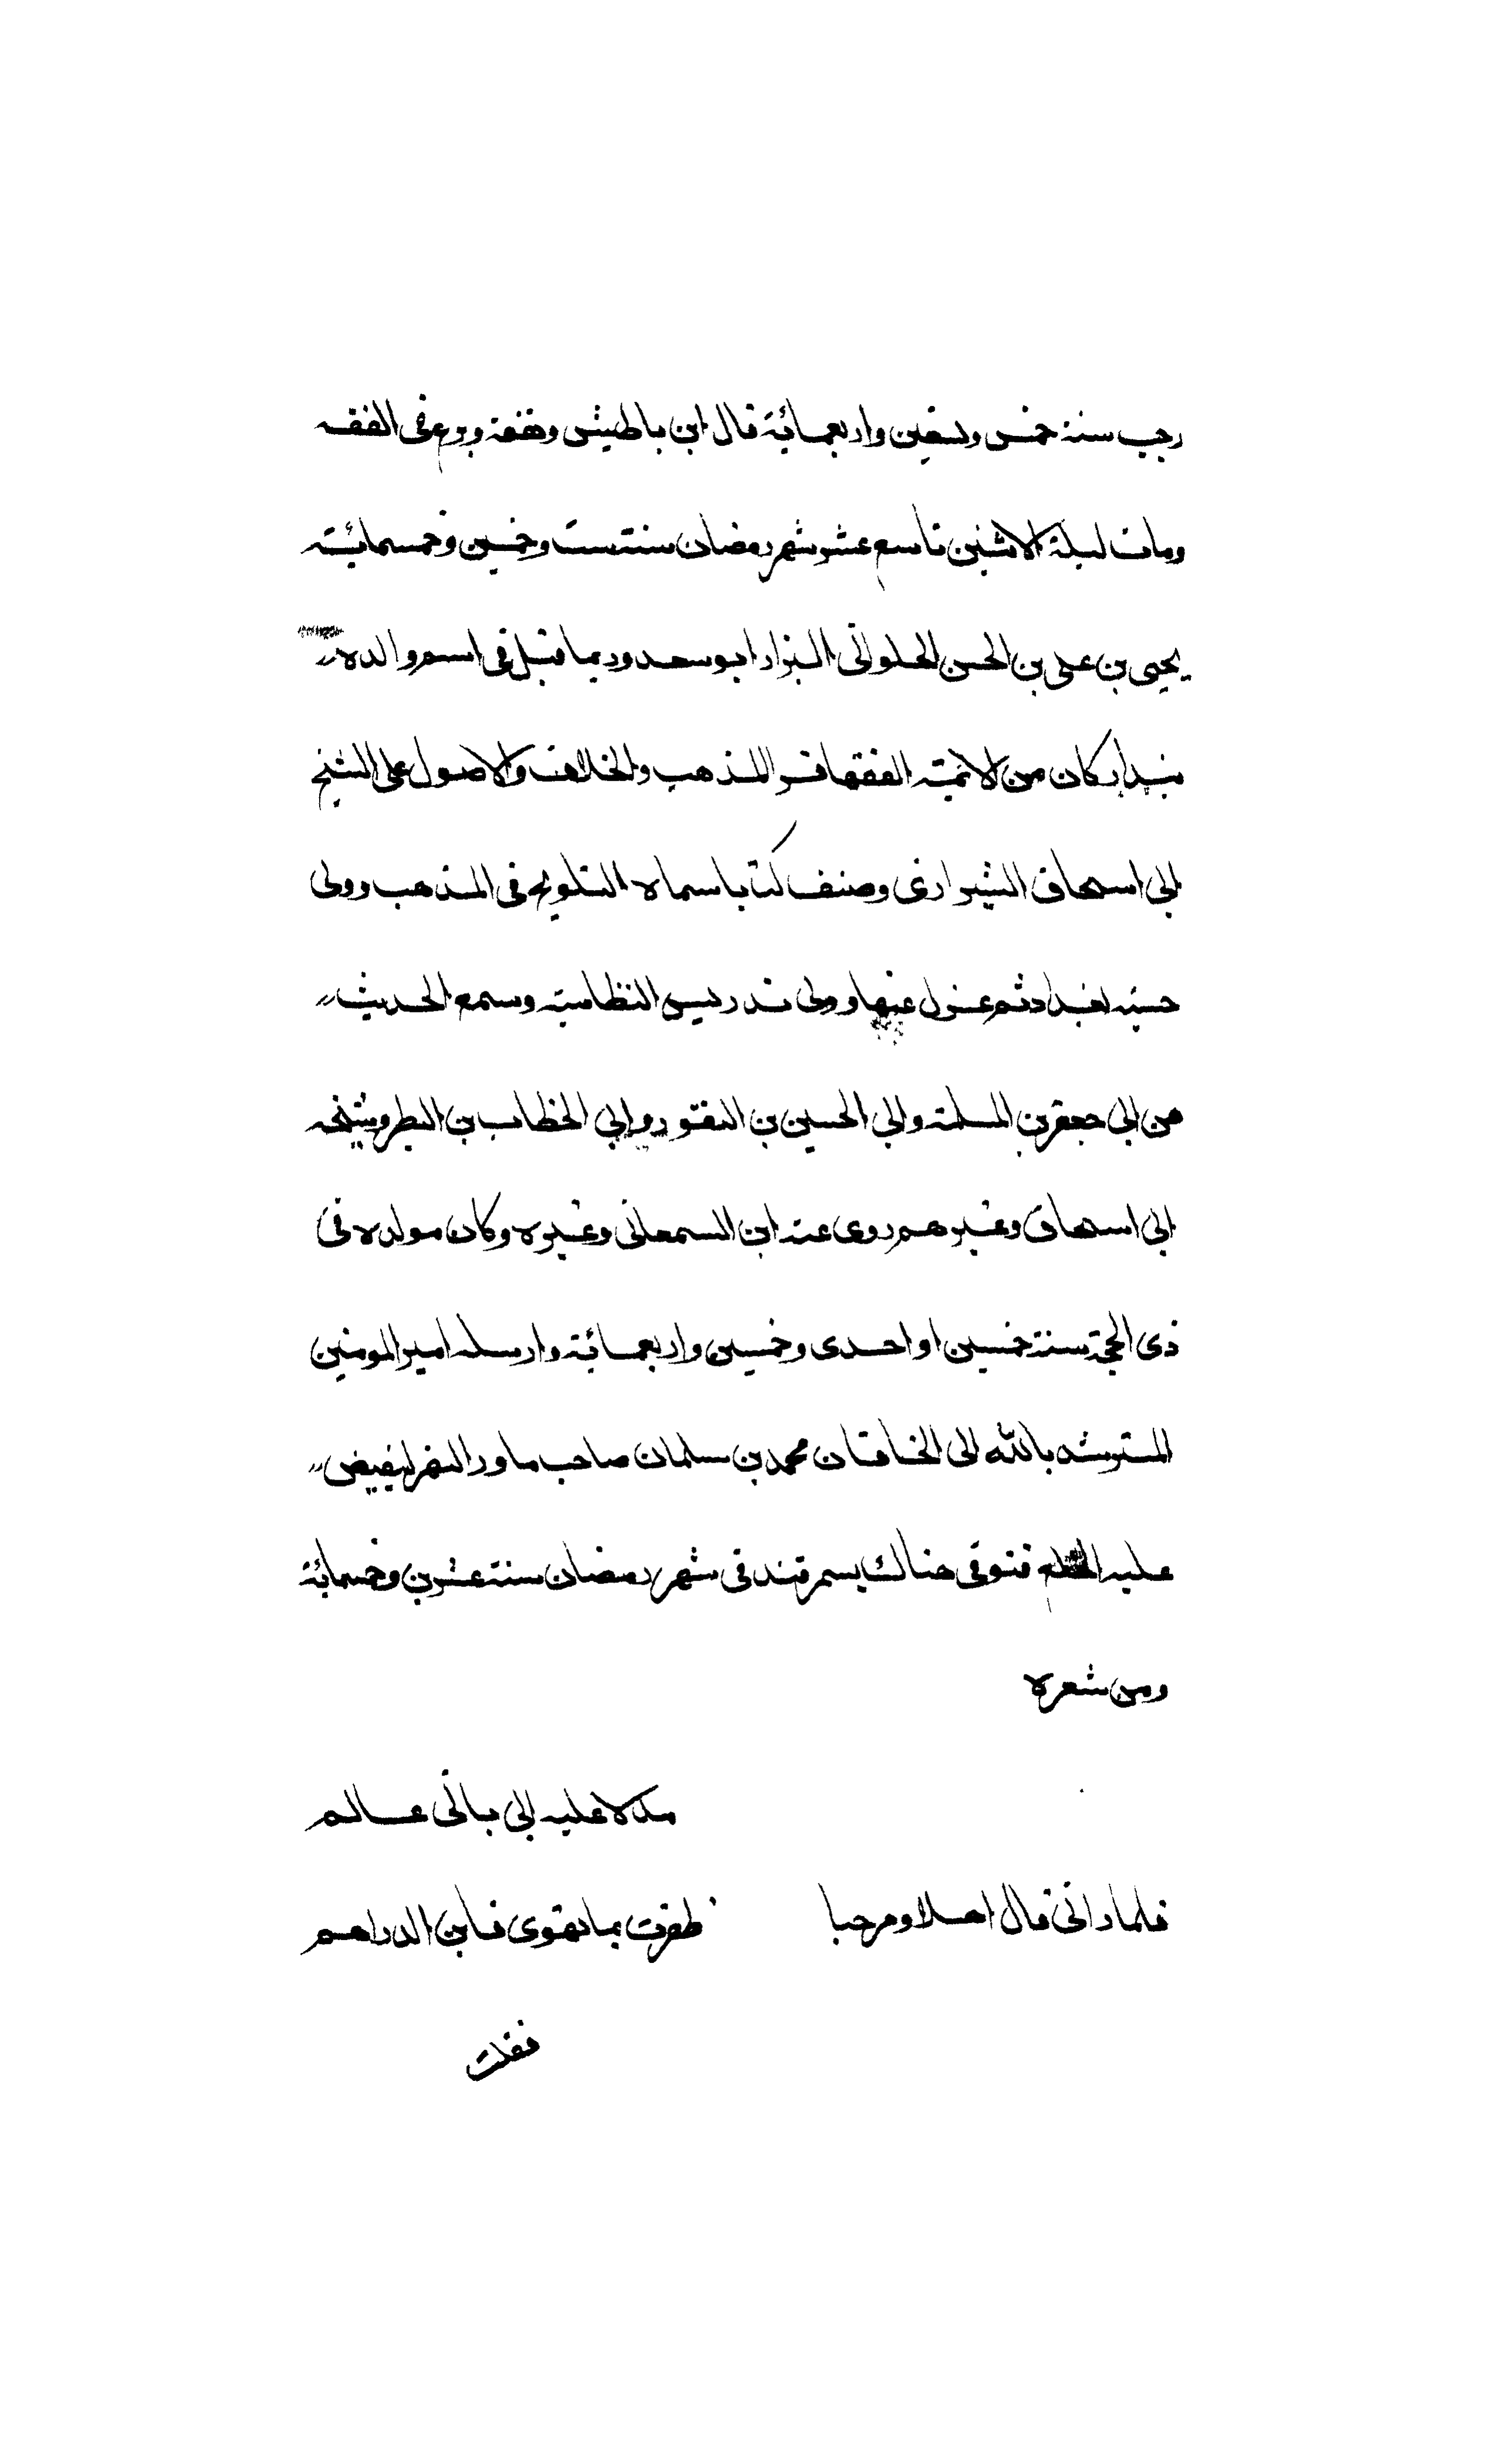 رجب سنة خمس وتسعين واربعمائة قال ابن باطيش وتفقه وبرع في الفقه
ومات ليلة الاثنين تاسع عشر شهر رمضان سنة ست وخمسين وخمسمائة
يحيى بن على بن الحسن الحلواني البزار ابو سعد وربما قيل في اسم والده
بندار كان من الائمة الفقها قرا المذهب والخلاف والاصول على الشيخ
ابي اسحاق الشيرازي وصنف كتابا سماه التلويح في المذهب وولى
حسبة بغداد ثم عزل عنها وولى تدريس النظامية وسمع الحديث
من ابي جعفر بن المسلمة وابي الحسين بن النقور وابي الخطاب بن البطر وشيخه
ابي اسحاق وغيرهم روى عنه ابن السمعاني وغيره وكان مولده في
ذى الحجة سنة خمسين او احدى وخمسين واربعمائة وارسله امير المومنين
المسترشد بالله الى الخاقان محمد بن سلمان صاحب ماورا النهر ليفيض
عليه الخلع فتوفى هناك بسمرقند في شهر رمضان سنة عشرين وخمسمائة
ومن شعره
مدلا عليه ابي باني عالم
فلما راني قال اهلا ومرحبا ظفرت بما تهوى فاين الدراهم
فقلت